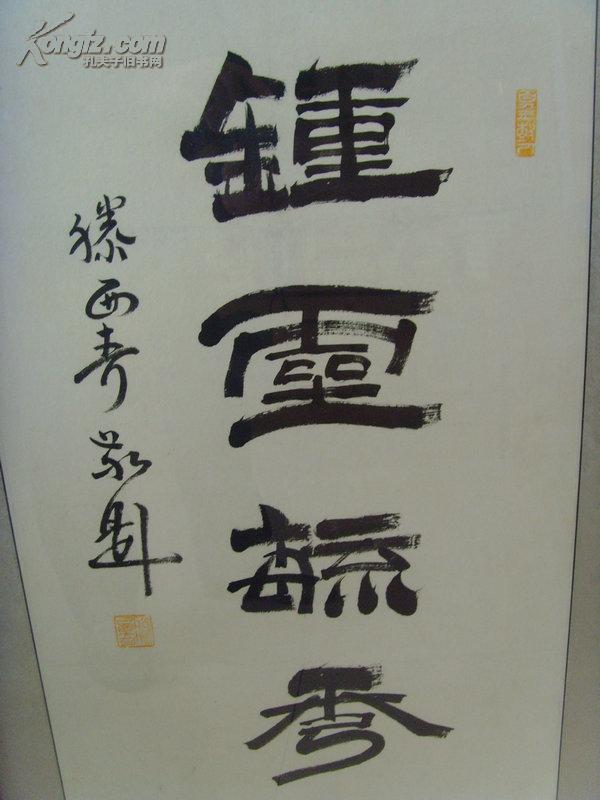 Kongfz.com
孔夫子旧书网
鍾靈毓秀
滕西奇敬題